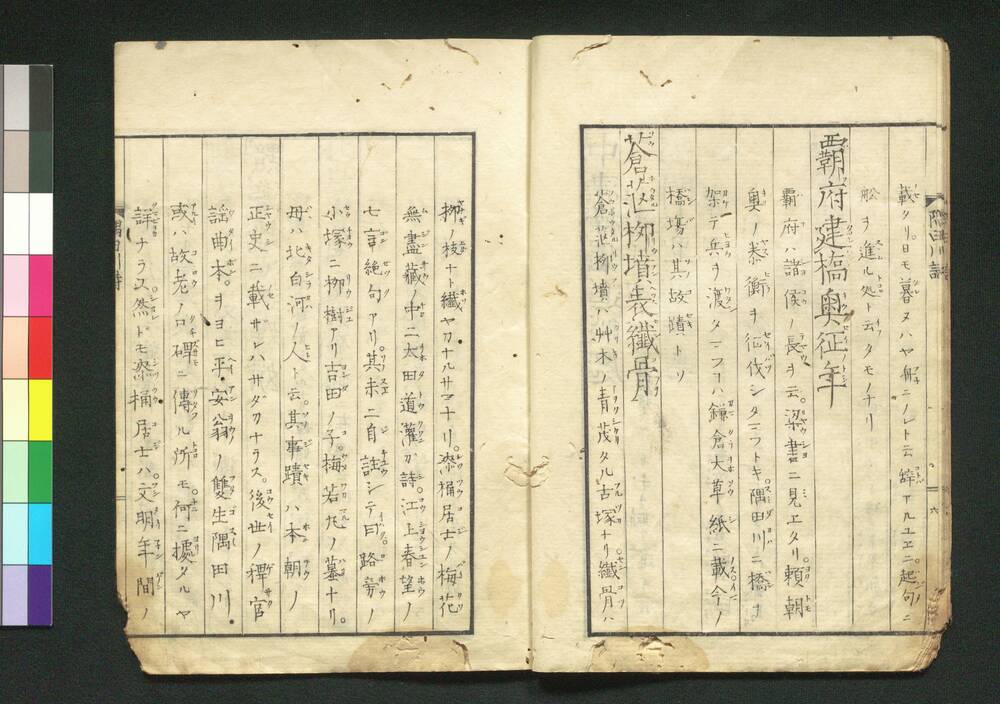 載タリ日モ暮ヌハヤ舟ニノレト云辞アルユヱニ起句ニ
舩ヲ進ル処ト云タモノナリ
覇府建橋奥征年
覇府ハ諸侯ノ長ヲ云梁書ニ見ヱタリ頼朝
奥ノ泰衡ヲ征伐シタマフトキ隅田川ニ橋ヲ
架テ兵ヲ渡タマフヿハ鎌倉大草紙ニ載今ノ
橋塲ハ其故蹟トソ
蒼茫柳墳表纎骨
蒼茫柳墳ハ艸木ノ青茂タル古塚ナリ纎骨ハ
柳ノ枝ナト纎ヤカナルサマナリ漆桶居士ノ梅花
無盡藏ノ中ニ太田道灌カ詩江上春望ノ
七言絶句アリ其末ニ自註シテ曰路旁ノ
小塚ニ柳樹アリ吉田ノ子梅若丸ノ墓ナリ。
母ハ北白河ノ人ト云。其事蹟ハ本朝ノ
正史ニ載ザレハサダカナラス。後世ノ稗官
謡曲本。ヲヨヒ平安翁ノ雙生隅田川。
或ハ故老ノ口碑ニ傳ル所モ何ニ據タルヤ
詳ナラス然ドモ漆桶居士ハ文明年間ノ
隅田川詩
六